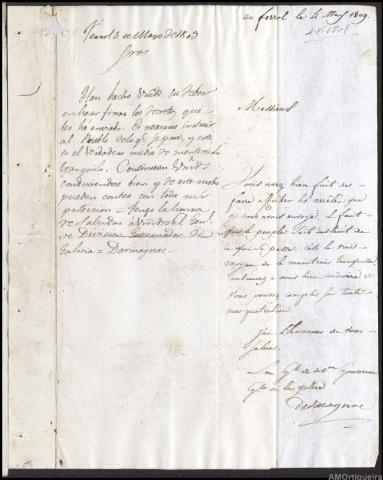 Ferrol 4 de Mayo de 1809
Sres
Han hecho Vmds. en deber
en hacer fixar los decretos que
les hé enviado. Es necesario instruir
al Pueblo de lo q.e se pasa, y este
es el verdadero medio de mantenerlo
tranquilo. Continuen Vmds.
conduciendose bien y de este modo
pueden contar con toda mi
proteccion = Tengo la honra
de Saludar a Vmds. = el Gen.l
de Division Governador de
Galicia = Darmagnac =
au ferrol le 4 May 1809.
4-V-1809
Messieurs
Vous avez bien fait de
faire afficher les arrêtés que
je vous avais envoyé. il faut
que le peuple soit instruit de
ce qui se passe, c'est le vrai
moyen de le maintenir tranquille
Continuez a vous bien conduire et
vous pouvez compter sur toute
ma protection.
J'ai l'honneur de vous
saluer.
Le G.al de d.on Gouverneur
G.al de la galice
Darmagnac
AMOrtigueira